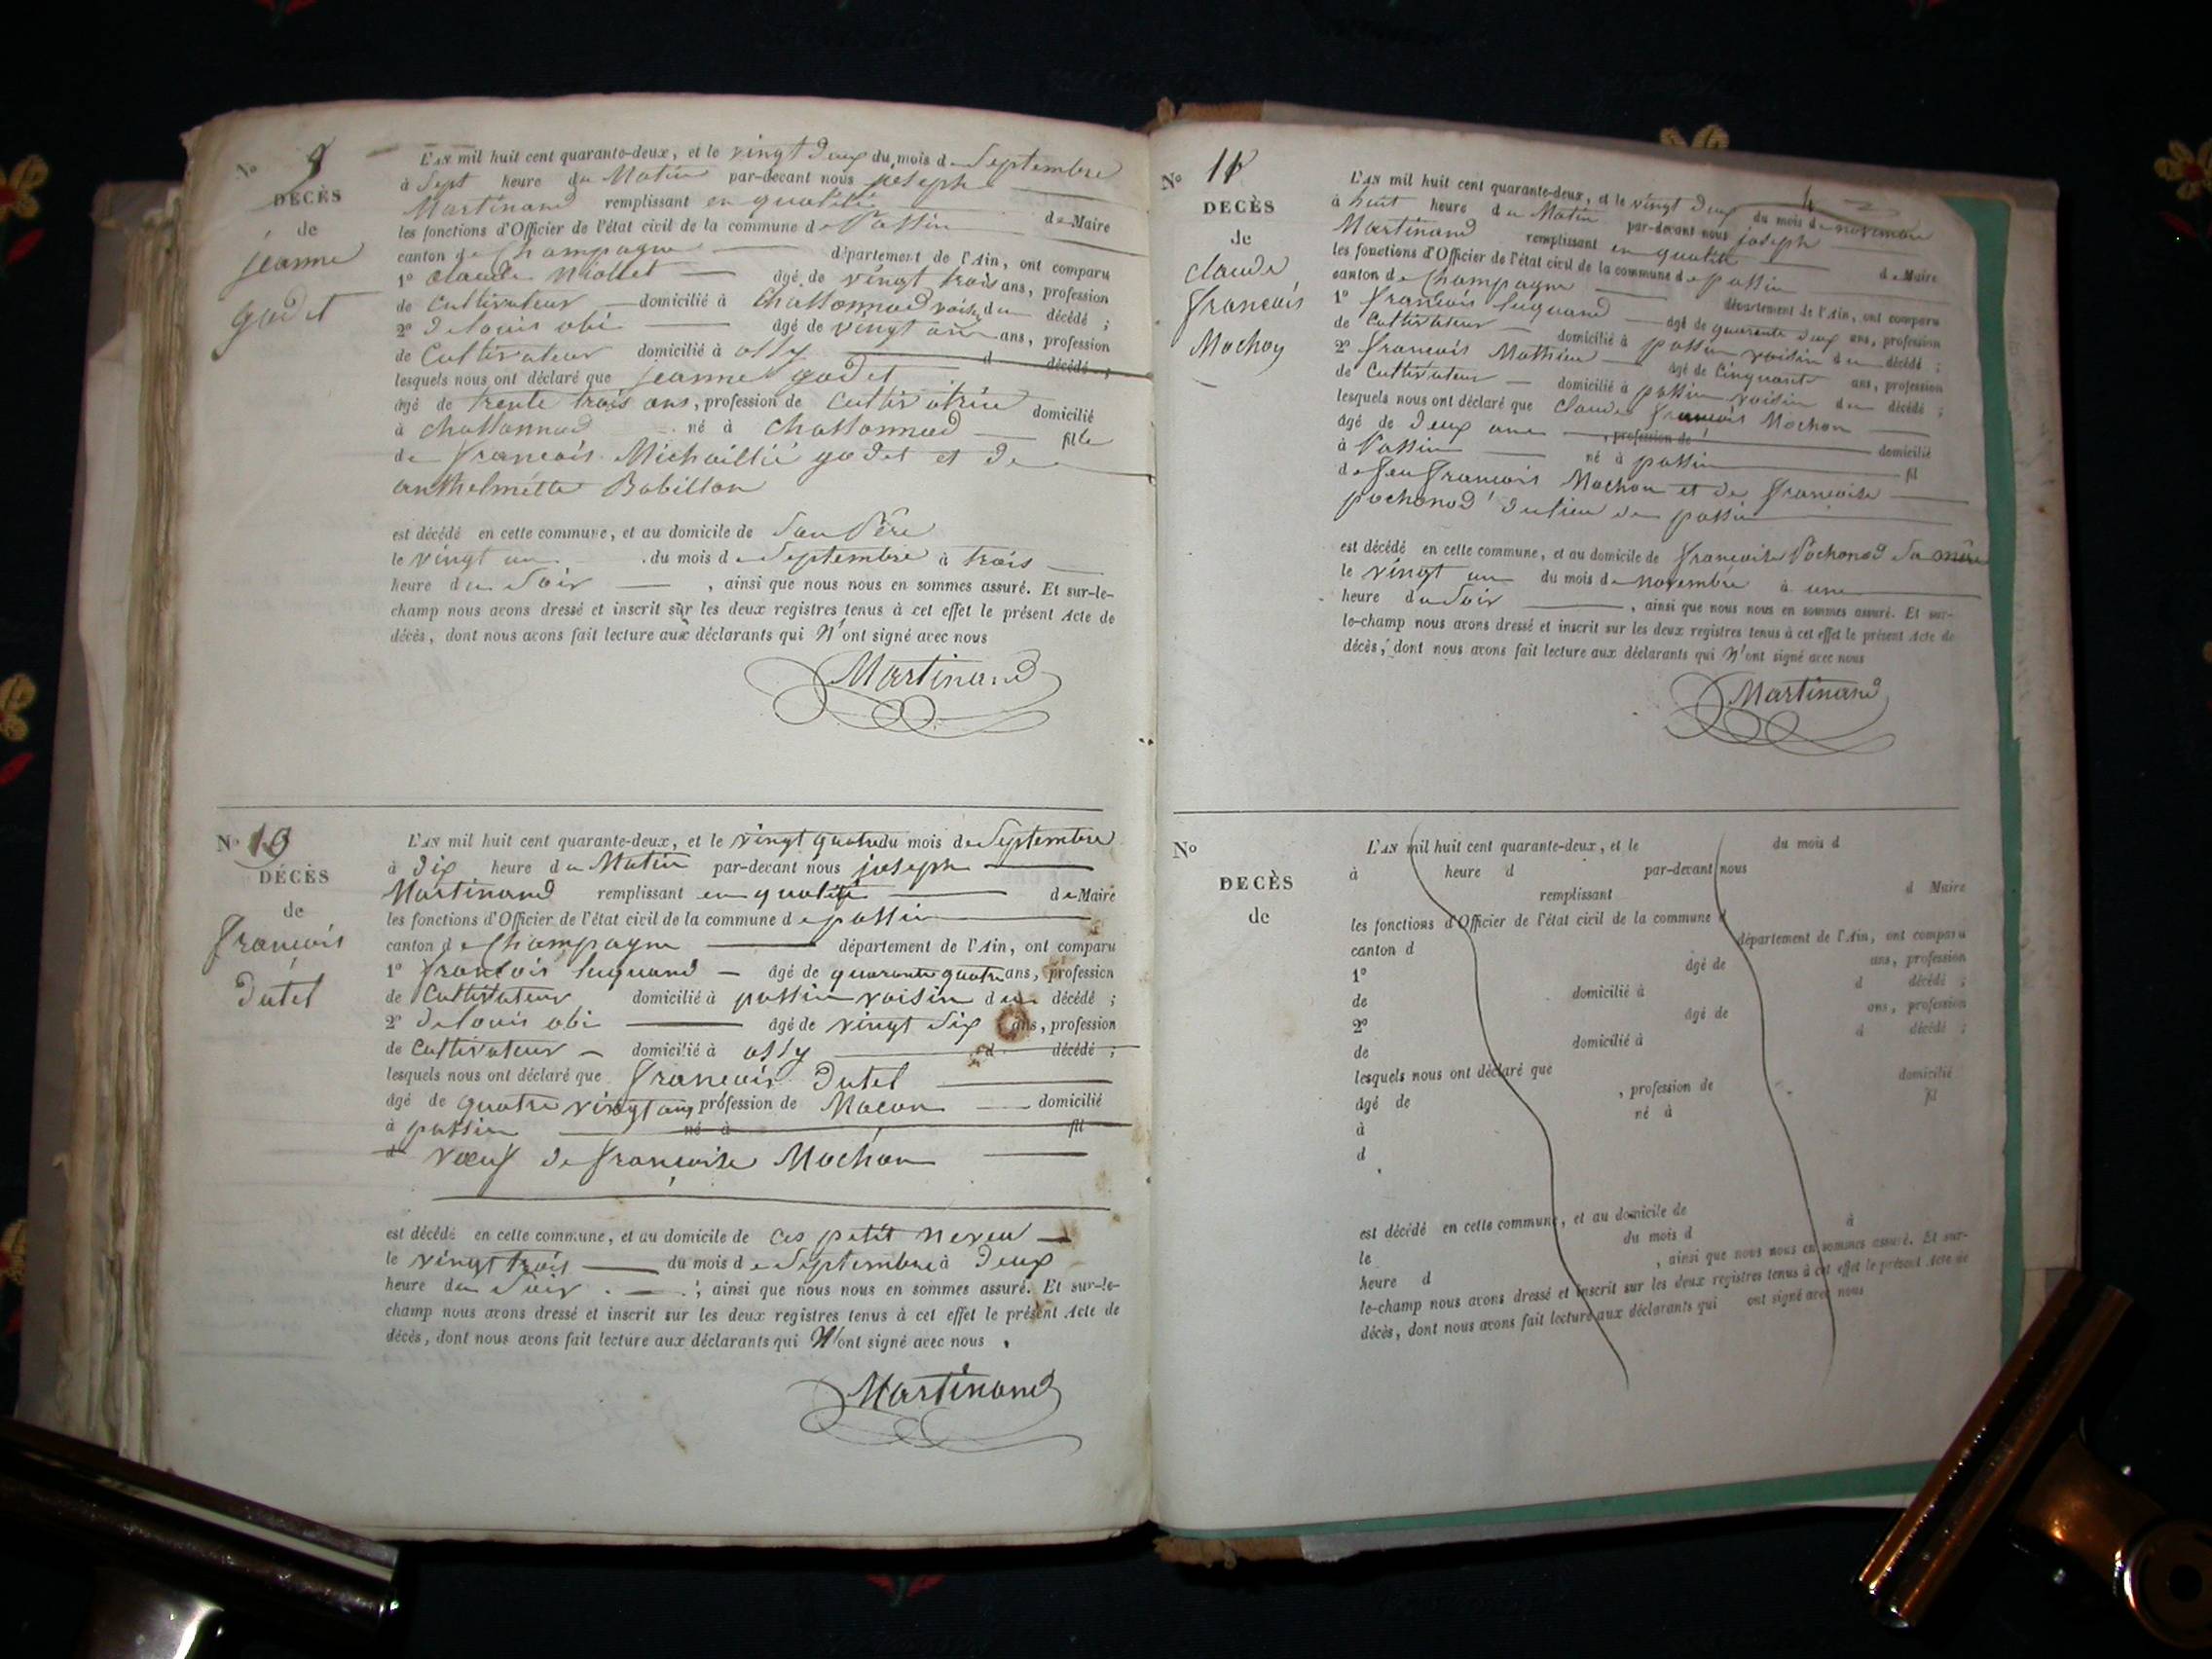 No 9
DÉCÈS
de
jeanne
godet
L'AN mil huit cent quarante-deux, et le vingt deux du mois de Septembre
à Sept heure du Matin par-devant nous joseph
Martinand remplissant en qualité de Maire
les fonctions d'Officier de l'état civil de la commune de Passin
canton de Champagne département de l'Ain, ont comparu
1o claude Mollet âgé de vingt trois ans, profession
de Cultivateur domicilié à Chassonnod voisin du décédé ;
2o delouis obi âgé de vingt ans, profession
de Cultivateur domicilié à ossy d décédé ;
lesquels nous ont déclaré que jeanne godet
âgé de trente trois ans, profession de Cultivatrice domicilié
à chassonnod né à chassonnod fille
de francois Michaillié godet et de
anthelmette Bobillon
est décédé en cette commune, et au domicile de Son Père
le vingt un du mois de Septembre à trois
heure du Soir , ainsi que nous nous en sommes assuré. Et sur-le-
champ nous avons dressé et inscrit sur les deux registres tenus à cet effet le présent Acte de
décès, dont nous avons fait lecture aux déclarants qui N'ont signé avec nous
Martinand
No 10
DÉCÈS
de
françois
dutel
L'AN mil huit cent quarante-deux, et le vingt quatre du mois de Septembre
à dix heure du Matin par-devant nous joseph
Martinand remplissant en qualité de Maire
les fonctions d'Officier de l'état civil de la commune de passin
canton de Champagne département de l'Ain, ont comparu
1o francois luquand âgé de quarante quatre ans, profession
de Cultivateur domicilié à passin voisin du décédé ;
2o delouis obi âgé de vingt Six ans, profession
de Cultivateur domicilié à ossy d décédé ;
lesquels nous ont déclaré que francois dutel
âgé de quatre vingt ans profession de Macon domicilié
à passin né à fil
d vœuf de françoise Mochon
est décédé en cette commune, et au domicile de ces petit neveu
le vingt trois du mois de Septembre à deux
heure du Soir ; ainsi que nous nous en sommes assuré. Et sur-le-
champ nous avons dressé et inscrit sur les deux registres tenus à cet effet le présent Acte de
décès, dont nous avons fait lecture aux déclarants qui N'ont signé avec nous
Martinand
No 11
DECÈS
de
claude
francois
Mochon
L'AN mil huit cent quarante-deux, et le vingt deux du mois de novembre
à huit heure du Matin par-devant nous joseph
Martinand remplissant en qualité de Maire
les fonctions d'Officier de l'état civil de la commune de passin
canton de Champagne département de l'Ain, ont comparu
1o francois luquand âgé de quarente deux ans, profession
de Cultivateur domicilié à passin voisin du décédé ;
2o francois Mathieu âgé de Cinquante ans, profession
de Cultivateur domicilié à passin voisin du décédé ;
lesquels nous ont déclaré que claude francois Mochon
âgé de deux ans , profession de domicilié
à Passin né à passin fil
de feu francois Mochon et de francoise
pochonod du lieu de passin
est décédé en cette commune, et au domicile de francoise Pochonod Sa mère
le vingt un du mois de novembre à une
heure du Soir , ainsi que nous nous en sommes assuré. Et sur-
le-champ nous avons dressé et inscrit sur les deux registres tenus à cet effet le présent Acte de
décès, dont nous avons fait lecture aux déclarants qui N'ont signé avec nous
Martinand
No
DECÈS
de
L'AN mil huit cent quarante-deux, et le du mois d
à heure d par-devant nous
remplissant d Maire
les fonctions d'Officier de l'état civil de la commune d
canton d département de l'Ain, ont comparu
1o âgé de ans, profession
de domicilié à d décédé ;
2o âgé de ans, profession
de domicilié à d décédé ;
lesquels nous ont déclaré que
âgé de , profession de domicilié
à né à fil
d
est décédé en cette commune, et au domicile de
le du mois d à
heure d , ainsi que nous nous en sommes assuré. Et sur-
le-champ nous avons dressé et inscrit sur les deux registres tenus à cet effet le présent Acte de
décès, dont nous avons fait lecture aux déclarants qui ont signé avec nous